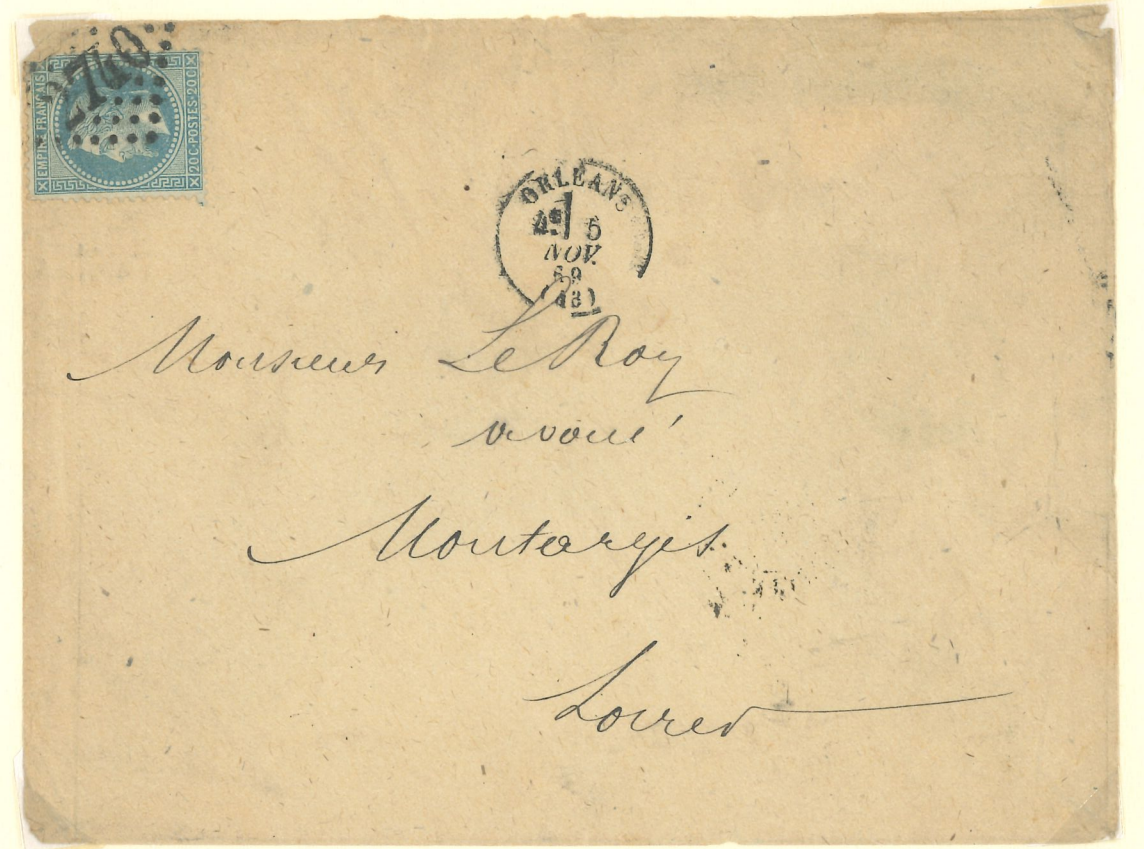 2740
EMPIRE FRANÇAIS
20C·POSTES·20C
ORLEANS
5
NOV.
69
Monsieur Le Roy
avoué
Montargis
Loiret